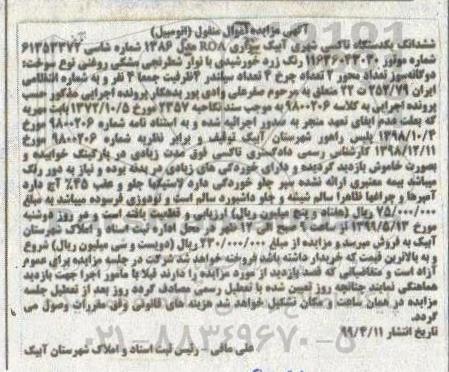 آگهی مزایده اموال منقول (اتومبیل)
ششدانگ یکدستگاه تاکسی شهری آبیک سواری ROA مدل ۱۳۸۶ شماره شاسی ۶۱۳۵۳۳۷۲
شماره موتور ۱۱۶۳۶۰۳۳۰۳۰ رنگ زرد خورشیدی با نوار شطرنجی مشکی روغنی نوع سوخت:
دوگانه‌سوز تعداد محور ۲ تعداد چرخ ۴ تعداد سیلندر ۴ظرفیت جمعا ۴ نفر و به شماره انتظامی
ایران ۷۹/ ۲۵۲ ت ۲۲ متعلق به مرحوم صفرعلی وادی پور بدهکار پرونده اجرایی مذکور حسب
پرونده اجرایی به کلاسه ۹۸۰۰۲۰۶ به موجب سند نکاحیه ۲۳۵۷ مورخ ۱۳۷۲/۱۰/۵ بابت مهریه
که بعلت عدم ایفای تعهد منجر به صدور اجرائیه شده و به استناد نامه شماره ۹۸۰۰۲۰۶ مورخ
۱۳۹۸/۱۰/۴ پلیس راهور شهرستان آبیک توقیف و برابر نظریه شماره ۹۸۰۰۲۰۶ مورخ
۱۳۹۸/۱۲/۱۱ کارشناس رسمی دادگستری تاکسی فوق مدت زیادی در پارکینگ خوابیده و
بصورت خاموش بازدید گردیده و دارای خوردگی های زیادی در بدنه بوده و نیاز به دور رنگ
میباشد بیمه معتبری ارائه نشده سپر جلو خوردگی دارد لاستیکها جلو و عقب ۴۵٪ آج دارد
آمپرها و چراغها ظاهرا سالم شیشه و جلو داشبورد سالم است و تودوزی فرسوده میباشد به مبلغ
۷۵/۰۰۰/۰۰۰ ریال (هفتاد و پنج میلیون ریال) ارزیابی و قطعیت یافته است و در روز دوشنبه
مورخ ۱۳۹۹/۵/۱۳ از ساعت ۹ صبح الی ۱۲ ظهر در محل اداره ثبت اسناد و املاک شهرستان
آبیک به فروش میرسد و مزایده از مبلغ ۲۳۰/۰۰۰/۰۰۰ ریال (دویست و سی میلیون ریال) شروع
و به بالاترین قیمت که خریدار داشته باشد فروخته خواهد شد شرکت در جلسه مزایده برای عموم
آزاد است و متقاضیانی که قصد بازدید از مورد مزایده را دارند قبلا با مامور اجرا جهت بازدید
هماهنگی نمایند چنانچه روز تعیین شده با تعطیل رسمی مصادف گردد روز بعد از تعطیل جلسه
مزایده در همان ساعت و مکان تشکیل خواهد شد هزینه های قانونی وفق مقررات وصول می
گردد.
تاریخ انتشار ۹۹/۴/۱۱
علی مافی - رئیس ثبت اسناد و املاک شهرستان آبیک
۰۲۱-۸۸۳۴۹۶۷۰-۵